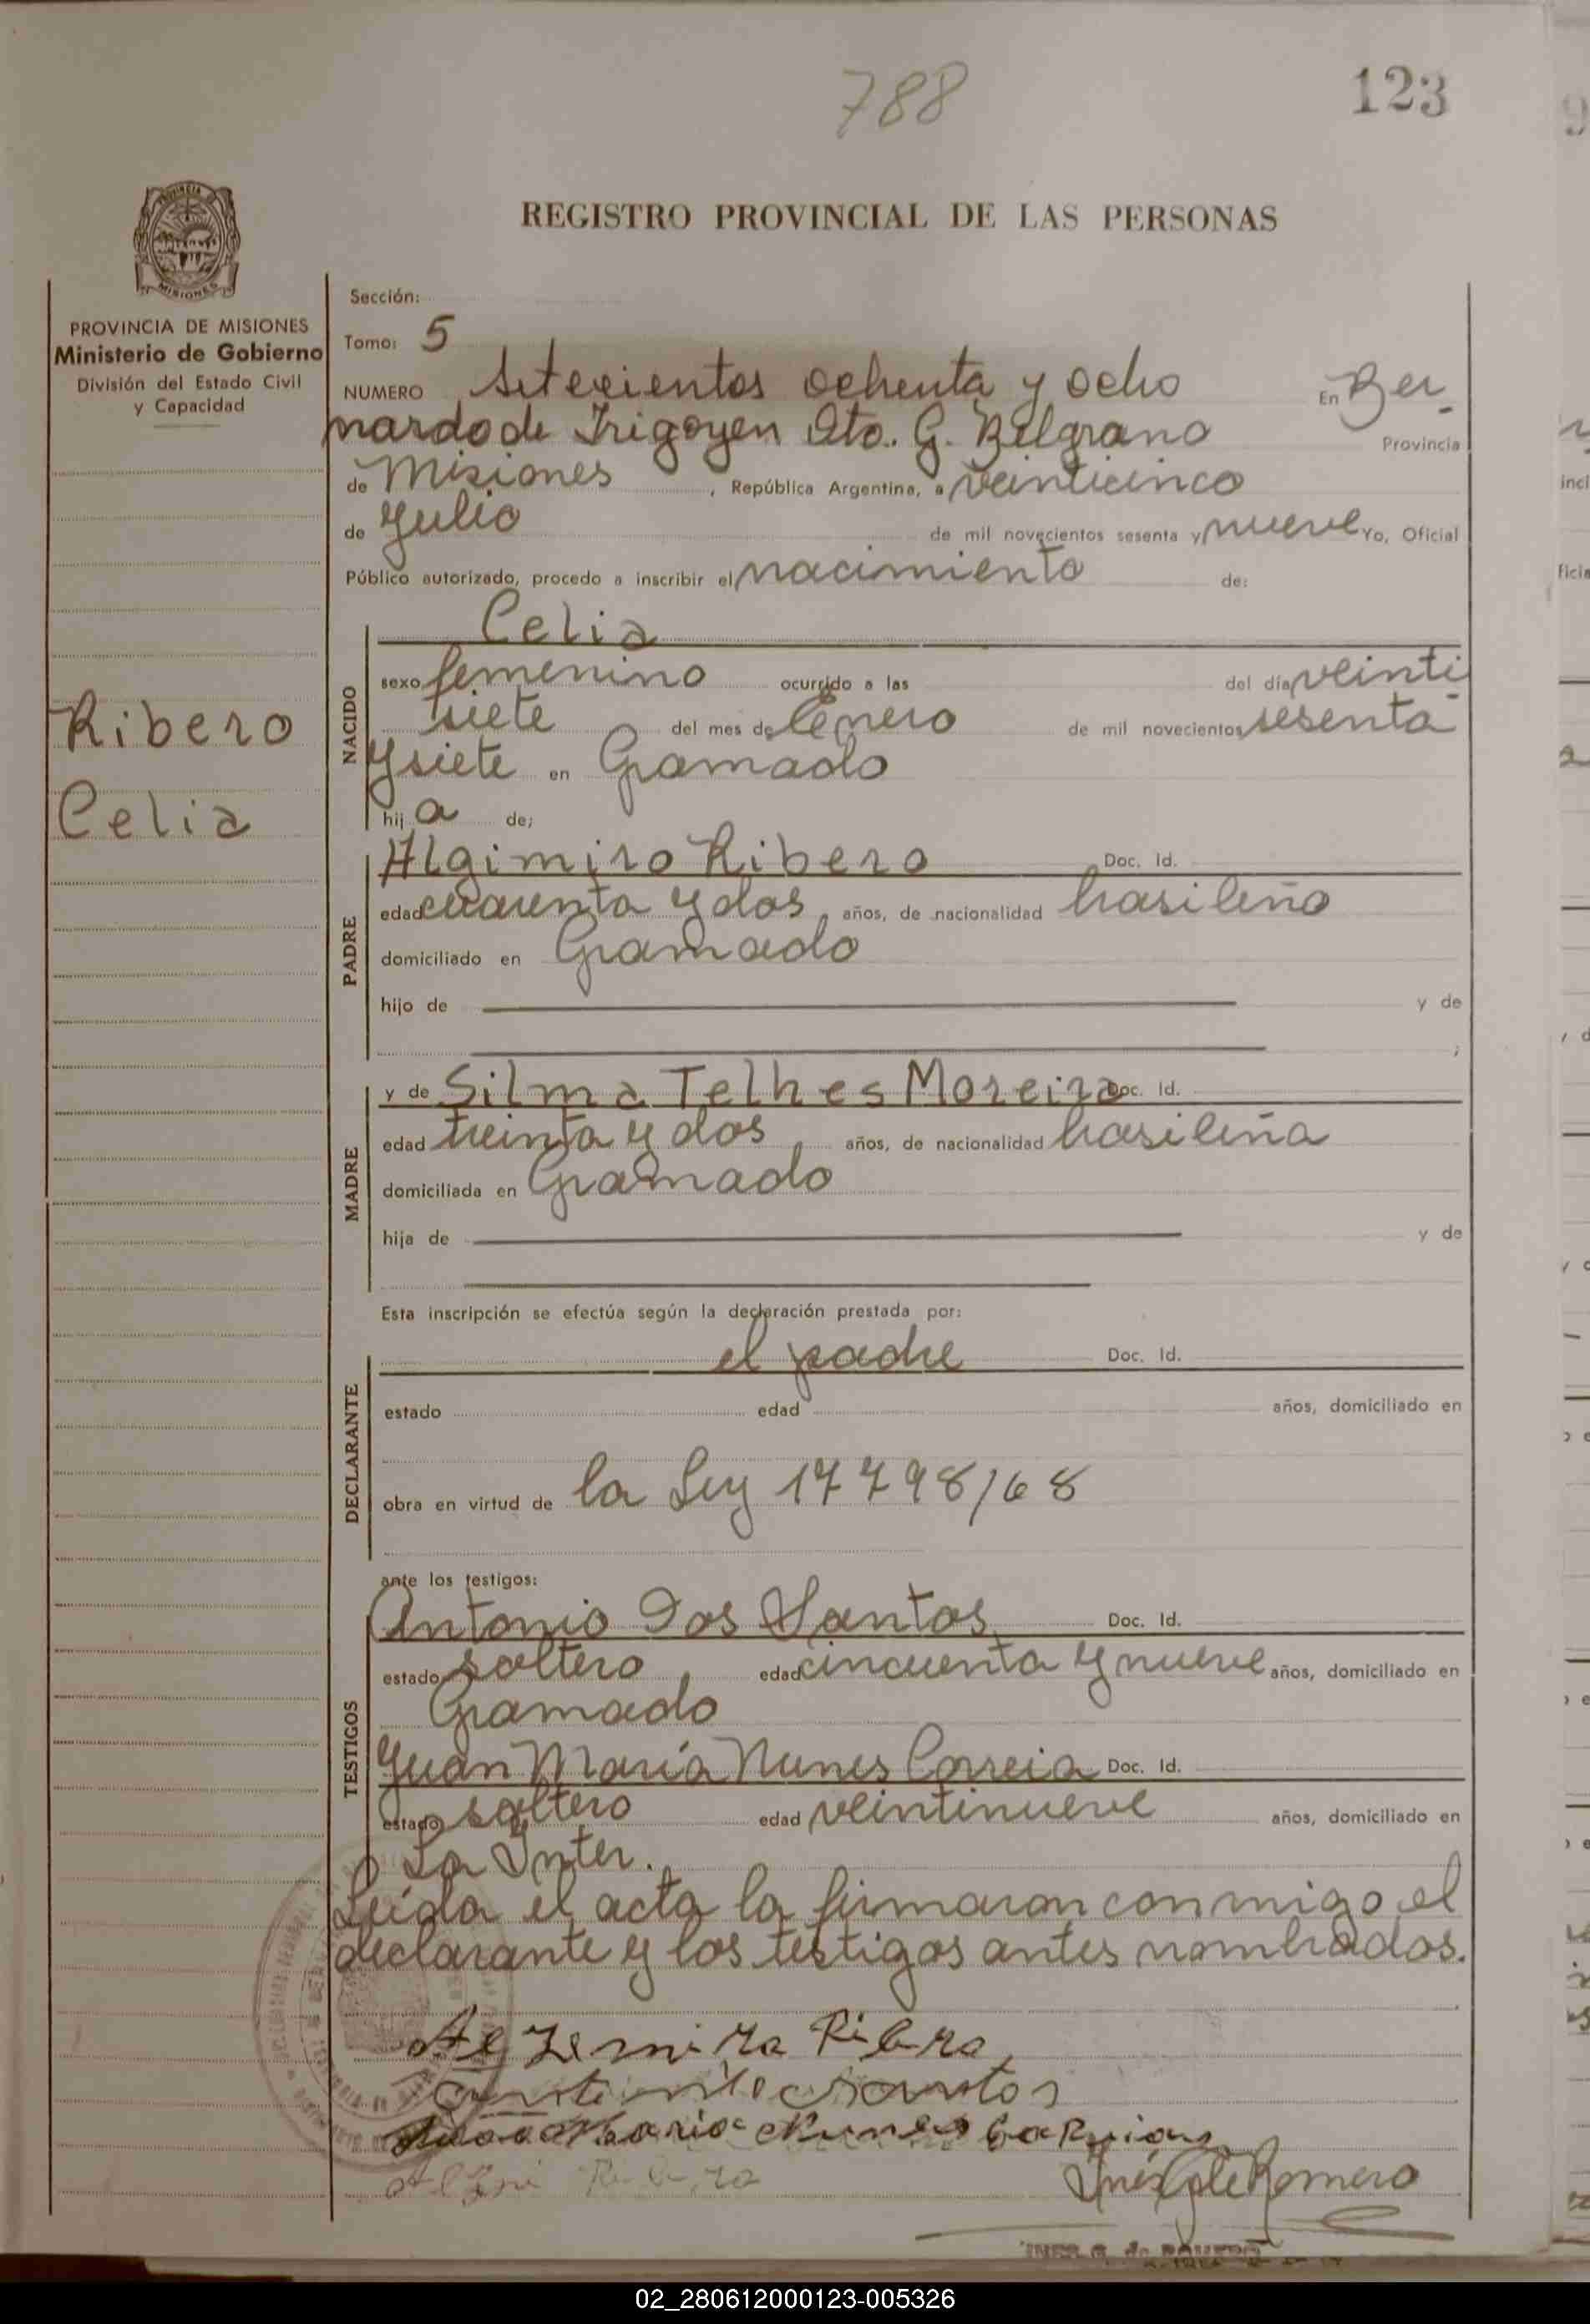 788
123
REGISTRO PROVINCIAL DE LAS PERSONAS
PROVINCIA DE MISIONES
Ministerio de Gobierno
División del Estado Civil
y Capacidad
Ribero
Celia
Sección:
Tomo: 5
NUMERO Setecientos ochenta y ocho En Ber-
nardo de Irigoyen Dto. G. Belgrano Provincia
de Misiones, República Argentina, a veinticinco
de Julio de mil novecientos sesenta y nueve Yo, Oficial
Público autorizado, procedo a inscribir el nacimiento de:
NACIDO
Celia
sexo femenino ocurrido a las del día veinti
siete del mes de Enero de mil novecientos sesenta
y siete en Gramado
hij a de;
PADRE
Algimiro Ribero Doc. Id.
edad cuarenta y dos, años, de nacionalidad brasileño
domiciliado en Gramado
hijo de y de
;
MADRE
y de Silma Telhes Moreira Doc. Id.
edad treinta y dos, años, de nacionalidad brasileña
domiciliada en Gramado
hija de y de
Esta inscripción se efectúa según la declaración prestada por:
DECLARANTE
el padre Doc. Id.
estado edad años, domiciliado en
obra en virtud de la Ley 17798/68
ante los testigos:
TESTIGOS
Antonio Dos Santos Doc. Id.
estado soltero, edad cincuenta y nueve años, domiciliado en
Gramado
Juan María Nunes Correia Doc. Id.
estado soltero edad veintinueve años, domiciliado en
La Inter.
Leída el acta la firmaron conmigo el
declarante y los testigos antes nombrados.
Inés G de Romero
INES G. de ROMERO
02_280612000123-005326